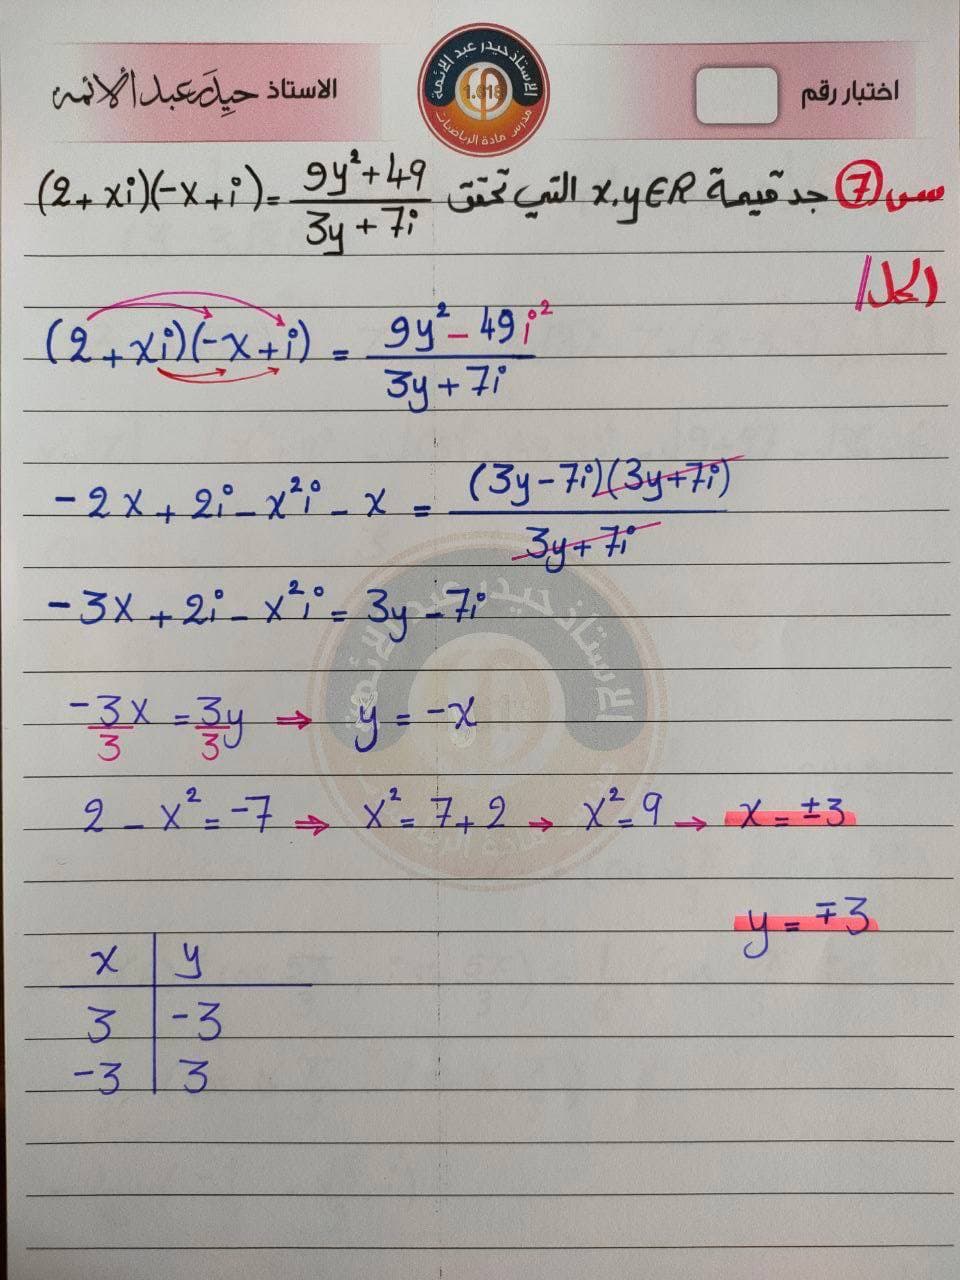 اختبار رقم
الاستاذ حيدر عبد الأئمه
الاستاذ حيدر عبد الائمة
1.618
مدرس مادة الرياضيات
س7 جد قيمة x,y∈R التي تحقق (2+xi)(-x+i) = (9y²+49)/(3y+7i)
الحل/
(2+xi)(-x+i) = (9y² - 49i²)/(3y+7i)
-2x + 2i - x²i - x = (3y-7i)(3y+7i)/(3y+7i)
-3x + 2i - x²i = 3y - 7i
-3x/3 = 3y/3 ⇒ y = -x
2 - x² = -7 ⇒ x² = 7+2 → x² = 9 → x = ±3
y = ∓3
x | y
3 | -3
-3 | 3